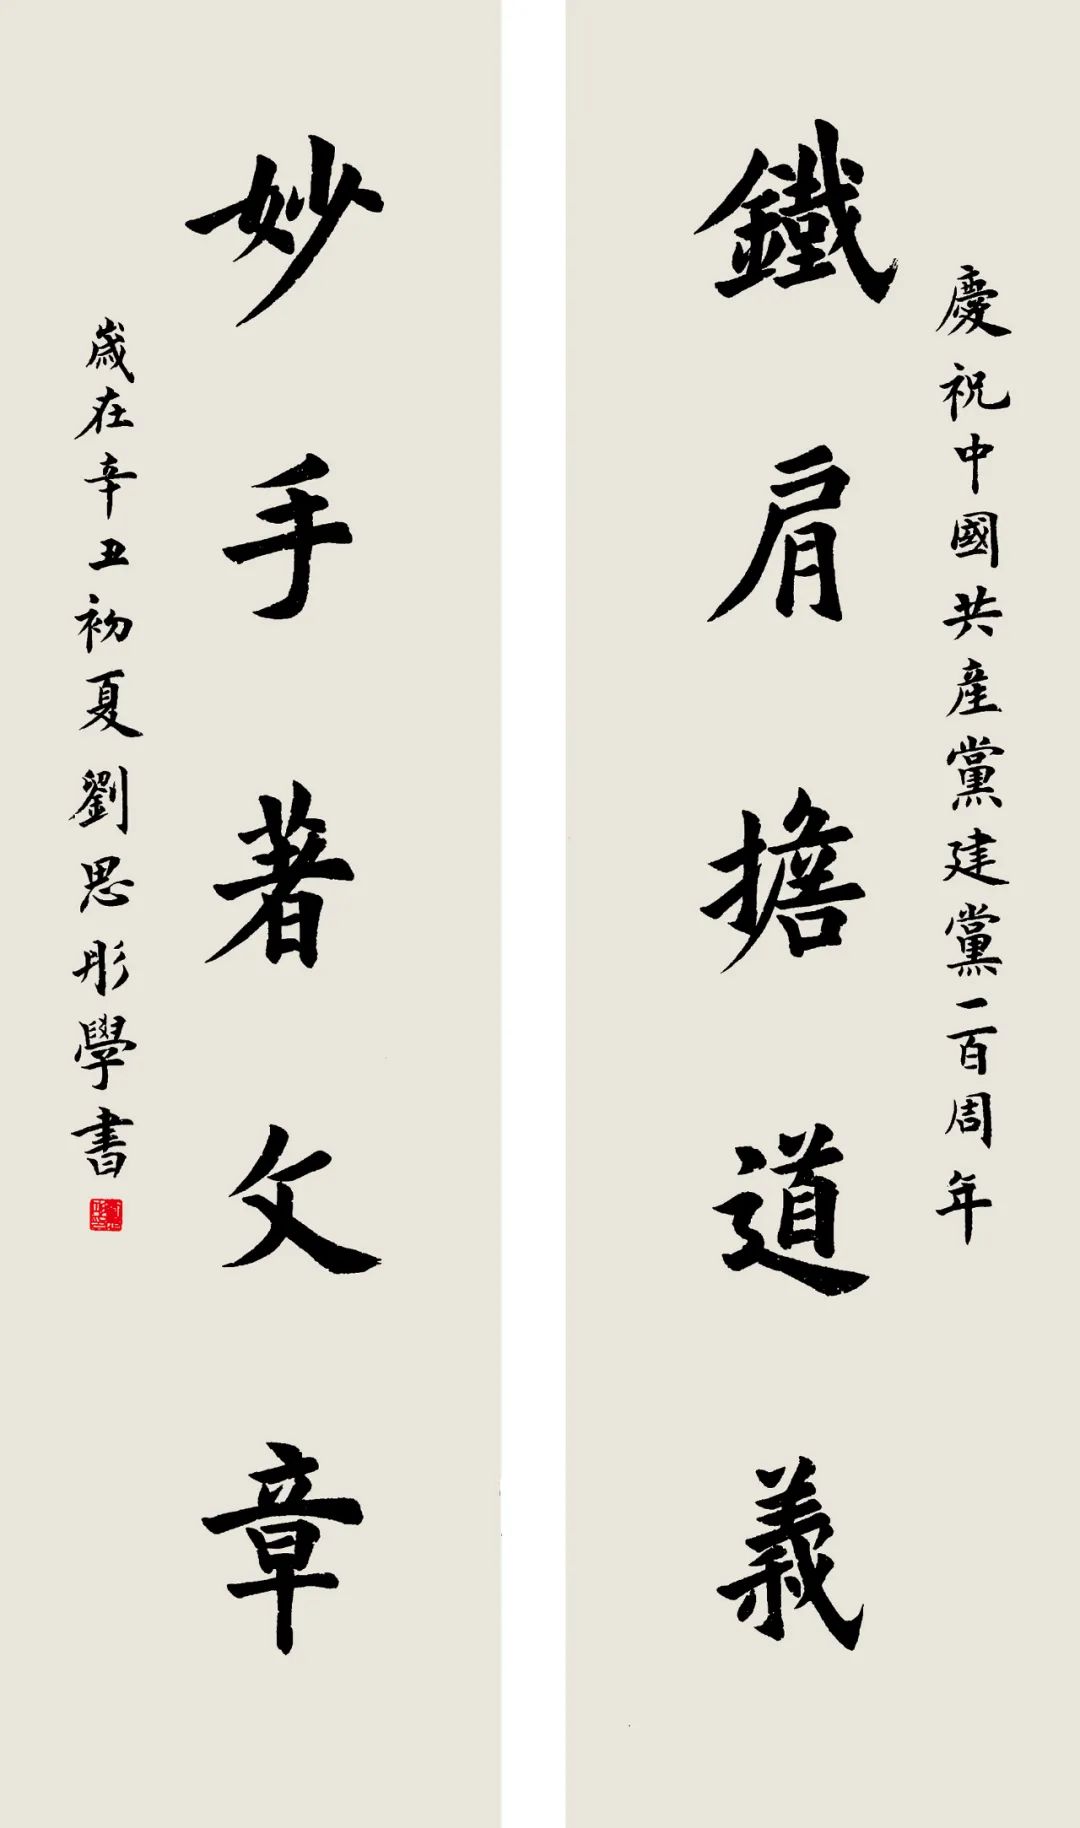 慶祝中國共産黨建黨一百周年
鐵肩擔道義
妙手著文章
歲在辛丑初夏劉思彤學書